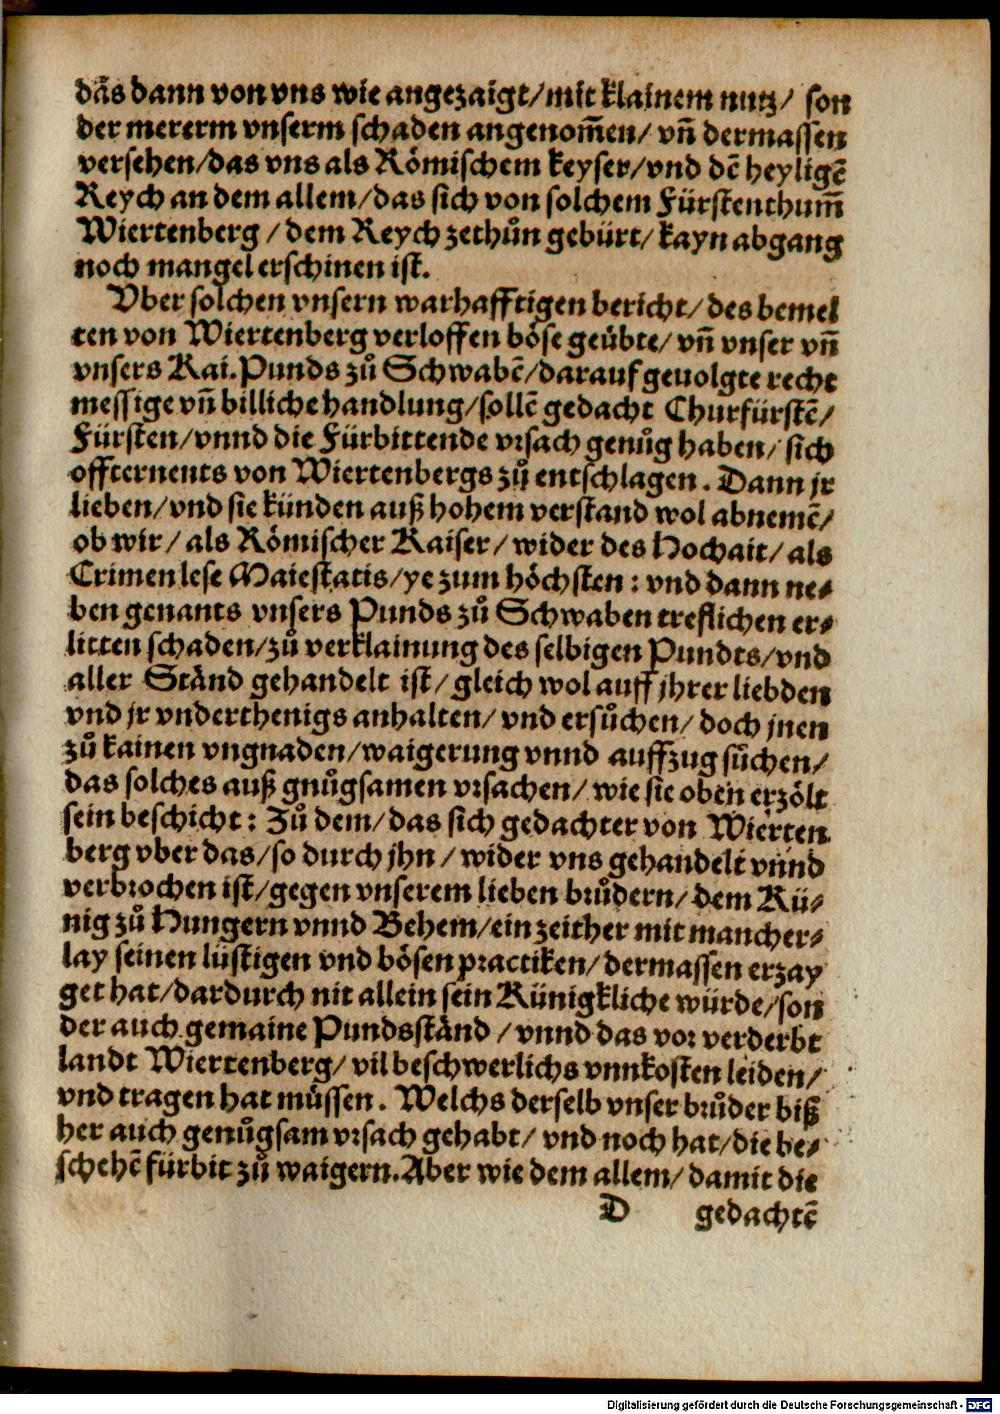 das dann von vns wie angezaigt/mit klainem nutz/ son
der mererm vnserm schaden angenom̃en/ vñ dermassen
versehen/das vns als Römischem keyser/vnd dẽ heyligẽ
Reych an dem allem/das sich von solchem Fürstenthum̃
Wiertenberg /dem Reych zethůn gebürt/ kayn abgang
noch mangel erschinen ist.
Vber solchen vnsern warhafftigen bericht/ des bemel
ten von Wiertenberg verloffen böse geübte/ vñ vnser vñ
vnsers Kai. Punds zů Schwabẽ/darauf geuolgte recht
messige vñ billiche handlung/sollẽ gedacht Churfürstẽ/
Fürsten/vnnd die Fürbittende vrsach genůg haben/ sich
offternents von Wiertenbergs zů entschlagen. Dann jr
lieben/vnd sie künden auß hohem verstand wol abnemẽ/
ob wir/ als Römischer Kaiser/ wider des Hochait/ als
Crimen lese Maiestatis/ye zum höchsten: vnd dann ne⸗
ben genants vnsers Punds zů Schwaben treflichen er⸗
litten schaden/zů verklainung des selbigen Pundts/vnd
aller Ständ gehandelt ist/ gleich wol auff jhrer liebden
vnd jr vnderthenigs anhalten/ vnd ersůchen/ doch jnen
zů kainen vngnaden/waigerung vnnd auffzug sůchen/
das solches auß gnůgsamen vrsachen/ wie sie oben erzölt
sein beschicht: Zů dem/das sich gedachter von Wierten
berg vber das/so durch jhn/ wider vns gehandelt vnnd
verbrochen ist/gegen vnserem lieben brůdern/ dem Kü⸗
nig zů Hungern vnnd Behem/ein zeither mit mancher⸗
lay seinen lüstigen vnd bösen practiken/ dermassen erzay
get hat/dardurch nit allein sein Künigkliche würde/son
der auch gemaine Pundsständ /vnnd das vor verderbt
landt Wiertenberg/ vil beschwerlichs vnnkosten leiden/
vnd tragen hat müssen. Welchs derselb vnser brůder biß
her auch genůgsam vrsach gehabt/ vnd noch hat/die be⸗
schehẽ fürbit zů waigern. Aber wie dem allem/ damit die
D gedachtẽ
Digitalisierung gefördert durch die Deutsche Forschungsgemeinschaft - DFG